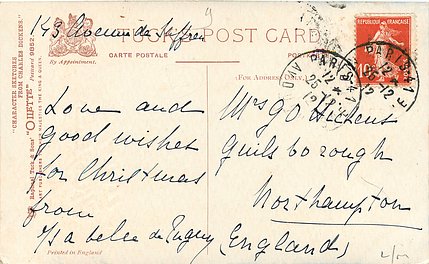 POST CARD
CARTE POSTALE
(FOR ADDRESS ONLY.)
By Appointment.
"CHARACTER SKETCHES
FROM CHARLES DICKENS."
Postcard 9852.
Raphael Tuck & Sons' "OILETTE"
REPUBLIQUE FRANÇAISE
10
PARIS 41
12
25-12
PARIS
12
25-12
Avenue de Saffren
Love and
good wishes
for Christmas
from
Isabelle de
Mrs GO Dickens
Guilsborough
Northampton
(England)
Printed in England